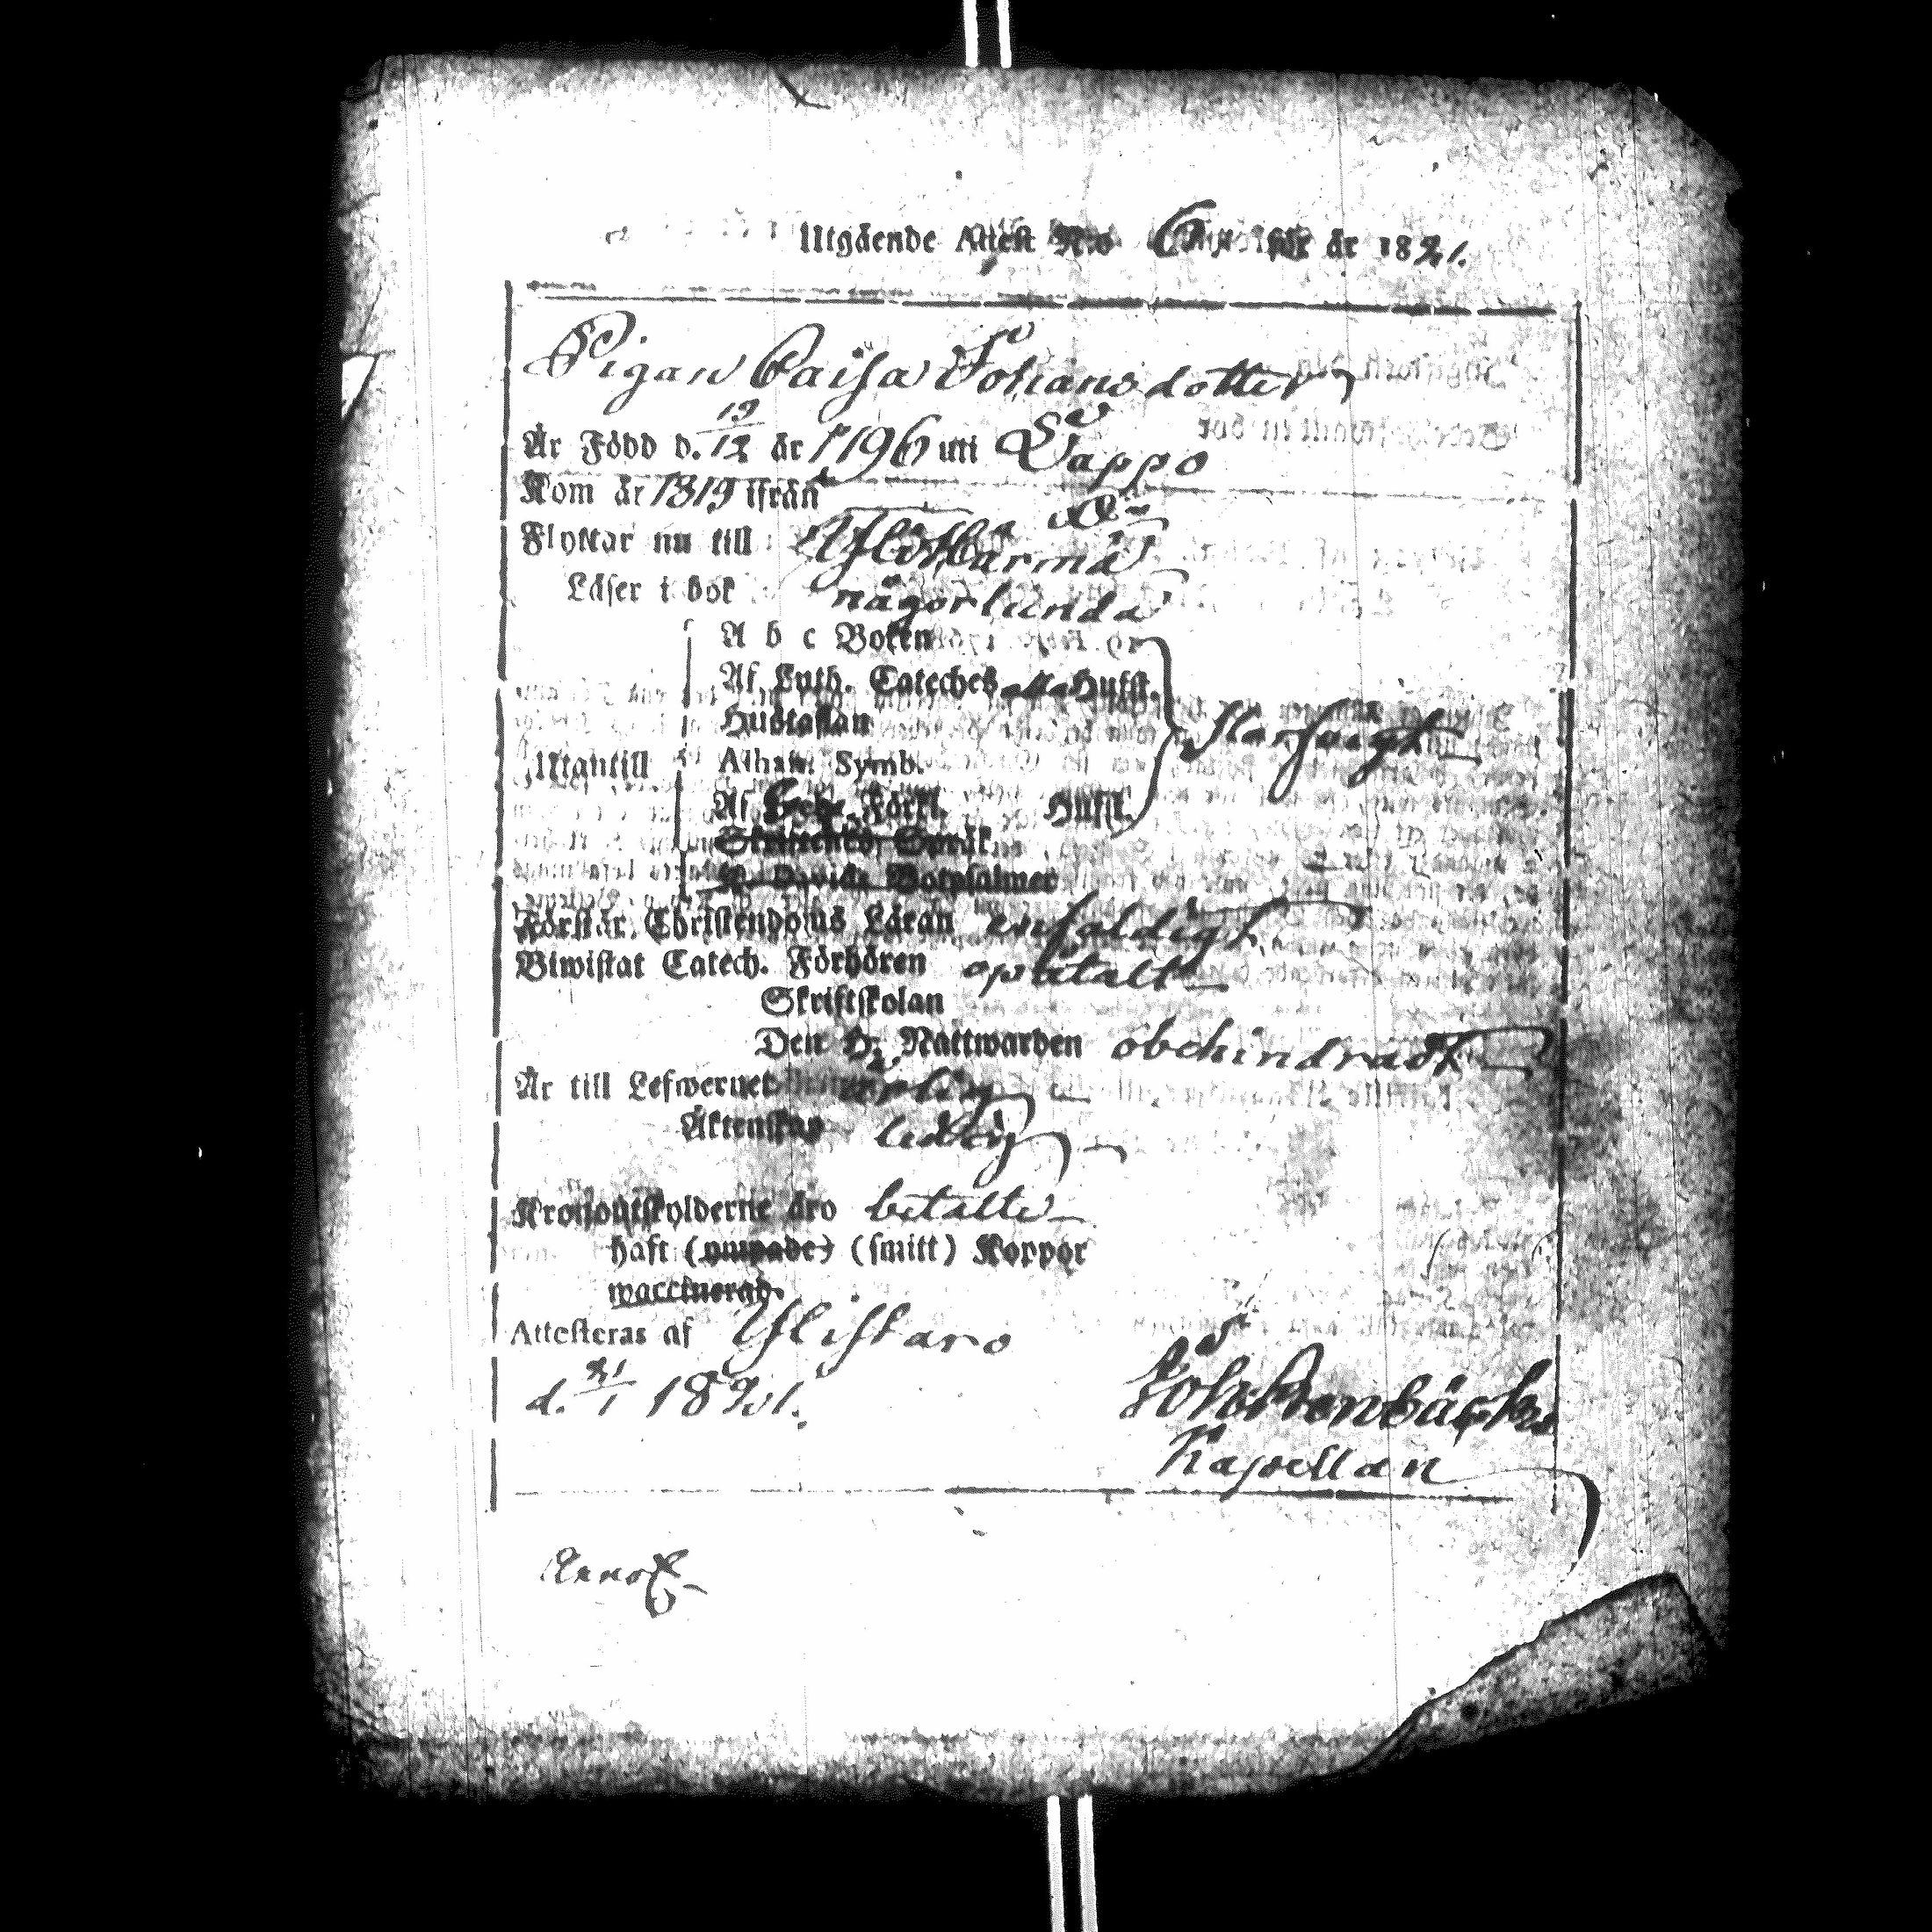 Utgående Attest N:o 6 för år 1821.
Pigan Caisa Johansdotter
Är Född d. 19/12 år 1796 uti Lappo
Kom år 1819 ifrån d:o
Flyttar nu till Ylistarma
Läser i bok någorlunda
A b c Boken
Af Luth. Cateches alla Hufst.
Hustaflan
Utantill Athan. Symb. Harsaigt
Af Förkl. Hufst.
Skriftens Språk
K. Davids Botpsalmer
Förstår Christendoms Läran enfaldigt
Biwistat Catech. Förhören opåtalt
Skriftskolan
Den H. Nattwarden obehindradt
Är till Lefwernet ärlig
Äktenskap ledig
Kronoutskylderne äro betalte
haft (ympade) (smitt) Koppor
waccinerad.
Attesteras af Ylistaro
d. 21/1 1821.
Joh:
Kapellan